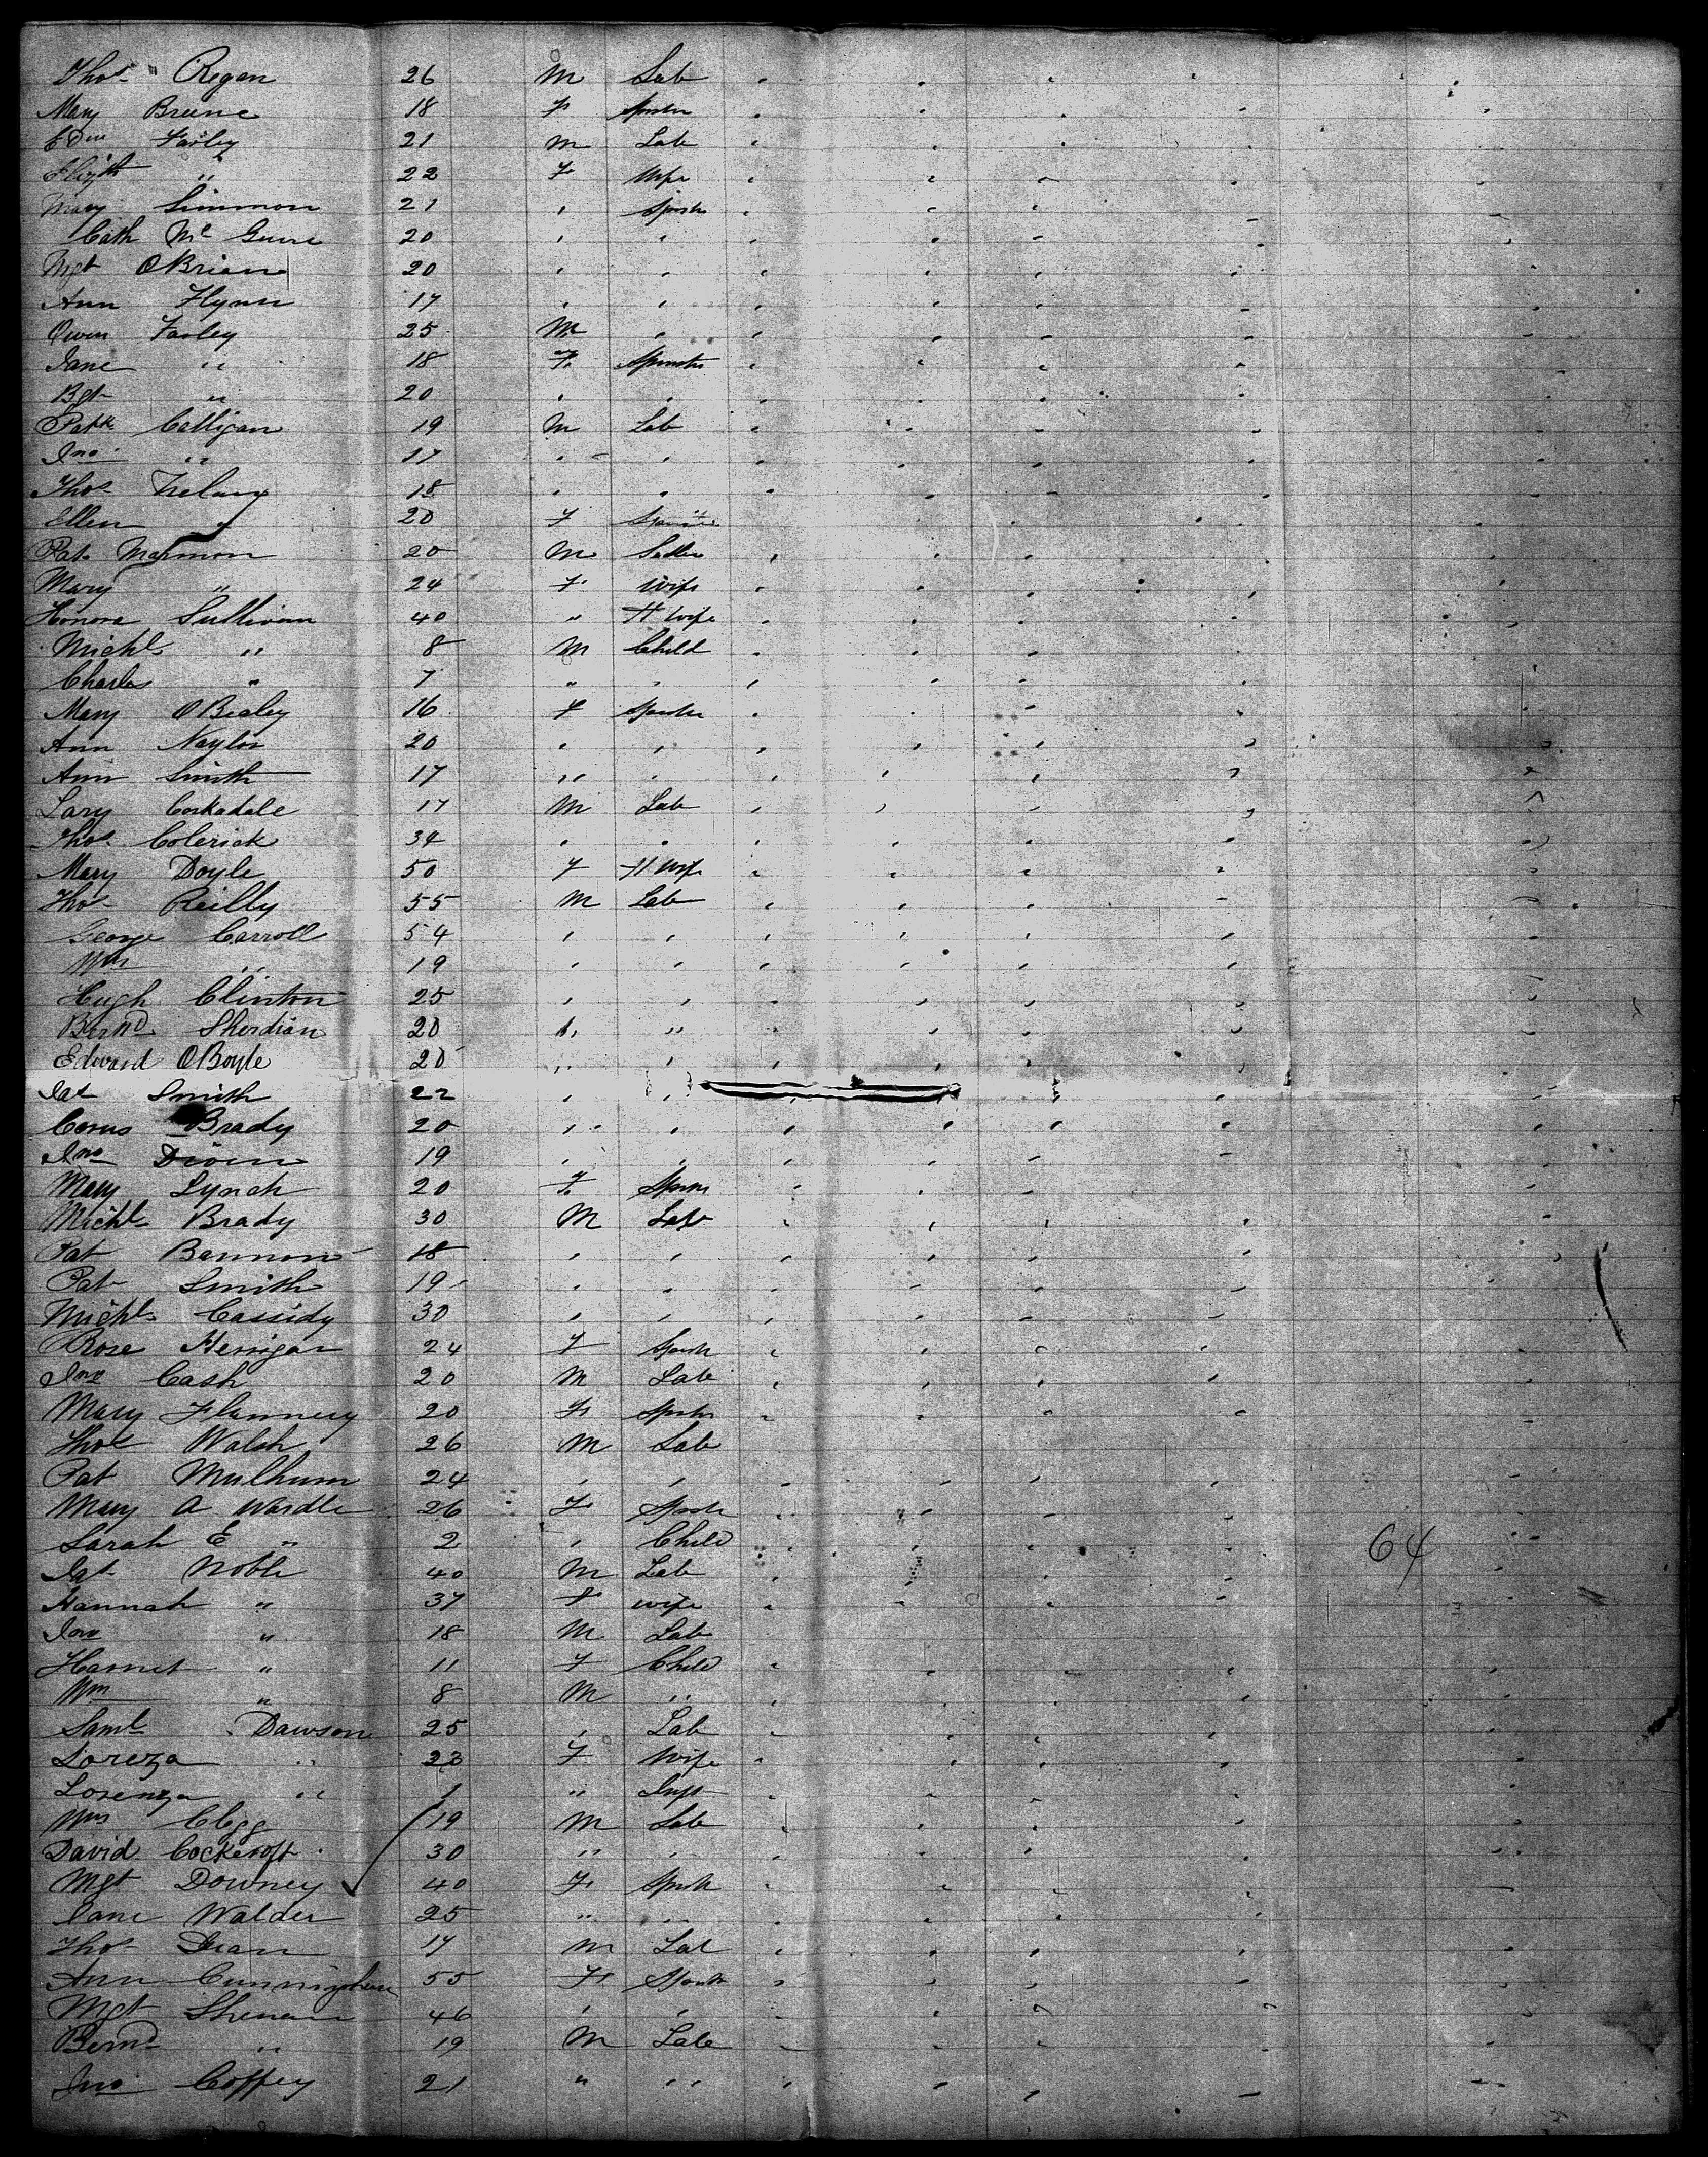 Thos Regan 26 M Lab
Mary Breene 18 F Spster
Edw Farley 21 M Lab
Elizth " 22 F Wife
Mary Simmon 21 " Spstr
Cath Mc Guire 20 " "
Mgt OBrien 20 " "
Ann Flynn 17 " "
Owen Farley 25 M "
Jane " 18 F Spinstr
Bgt " 20 " "
Patk Calligan 19 M Lab
Jno " 17 " "
Thos 18 " "
Ellen " 20 F
Pat 20 M
Mary " 24 F Wife
Honora Sullivan 40 " H Wife
Michl " 8 M Child
Charles " 7 " "
Mary OBealey 16 F Spster
Ann Naylor 20 " "
Ann Smith 17 " "
Lary Corkadale 17 M Lab
Thos Colerick 34 " "
Mary Doyle 50 F H Wife
Thos Reilly 55 M Lab
George Carroll 54 " "
Wm " 19 " "
Hugh Clinton 25 " "
Bernd Sherdian 20 " "
Edward OBoyle 20 " "
Jas Smith 22 " "
Corns Brady 20 " "
Jno 19 " "
Mary Lynch 20 F Spstr
Michl Brady 30 M Lab
Pat Bannon 18 " "
Pat Smith 19 " "
Michl Cassidy 30 " "
Rose Kerrigan 24 F Spstr
Jno Cash 20 M Lab
Mary Flannery 20 F Spstr
Thos Walsh 26 M Lab
Pat Mulhum 24 " "
Mary A Wardle 26 F Spstr
Sarah E " 2 " Child
64
Jas Noble 40 M Lab
Hannah " 37 F wife
Jno " 18 M Lab
Harriet " 11 F Child
Wm " 8 M "
Saml Dawson 25 " Lab
Loreza " 23 F Wife
Lorenza " 1 " Inft
Wm Clegg 19 M Lab
David Cockcroft 30 " "
Mgt Downey 40 F Spstr
Jane Walder 25 " "
Thos Dean 17 M Lab
Ann Cunningham 55 F Spstr
Mgt Shenan 46 " "
Bernd " 19 M Lab
Jno Coffey 21 " "